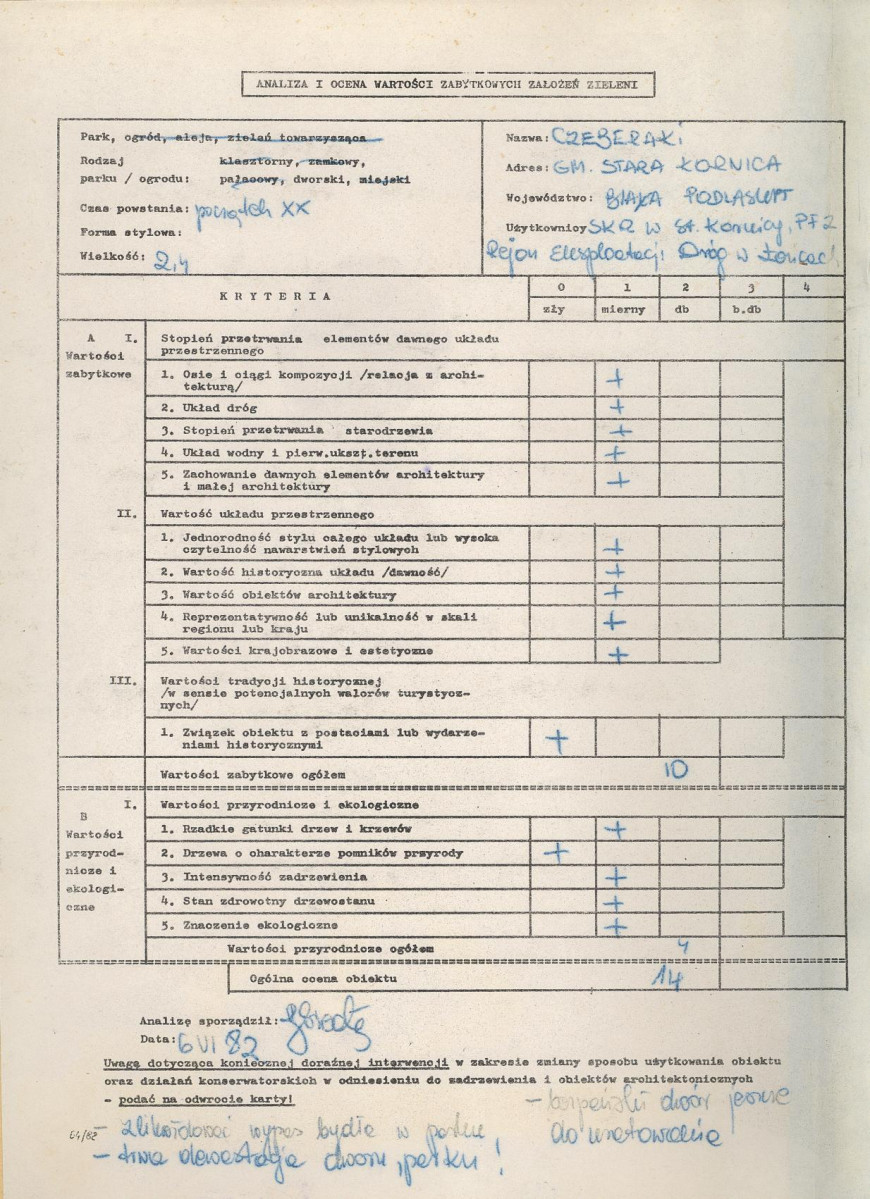 ANALIZA I OCENA WARTOŚCI ZABYTKOWYCH ZAŁOŻEŃ ZIELENI
Park, ogród, aleja, zieleń towarzysząca
Rodzaj klasztorny, zamkowy,
parku / ogrodu: pałacowy, dworski, miejski
Czas powstania: początek XX
Forma stylowa:
Wielkość: 2,4
Nazwa: CZEBERAKI
Adres: GM. STARA KORNICA
Województwo: BIAŁA PODLASKA
Użytkownicy SKR w St. Kornicy, PFZ
Rejon Eksploatacji Dróg w Łosicach
KRYTERIA
0 1 2 3 4
zły mierny db b.db
A I. Stopień przetrwania elementów dawnego układu
Wartości przestrzennego
zabytkowe
1. Osie i ciągi kompozycji /relacja z archi- +
tekturą/
2. Układ dróg +
3. Stopień przetrwania starodrzewia +
4. Układ wodny i pierw.ukszt.terenu +
5. Zachowanie dawnych elementów architektury +
i małej architektury
II. Wartość układu przestrzennego
1. Jednorodność stylu całego układu lub wysoka
czytelność nawarstwień stylowych +
2. Wartość historyczna układu /dawność/ +
3. Wartość obiektów architektury +
4. Reprezentatywność lub unikalność w skali +
regionu lub kraju
5. Wartości krajobrazowe i estetyczne +
III. Wartości tradycji historycznej
/w sensie potencjalnych walorów turystycz-
nych/
1. Związek obiektu z postaciami lub wydarze- +
niami historycznymi
Wartości zabytkowe ogółem 10
B I. Wartości przyrodnicze i ekologiczne
Wartości
przyrod-
nicze i
ekologi-
czne
1. Rzadkie gatunki drzew i krzewów +
2. Drzewa o charakterze pomników przyrody +
3. Intensywność zadrzewienia +
4. Stan zdrowotny drzewostanu +
5. Znaczenie ekologiczne +
Wartości przyrodnicze ogółem 4
Ogólna ocena obiektu 14
Analizę sporządził:
Data: 6 VI 82
Uwagę dotyczącą koniecznej doraźnej interwencji w zakresie zmiany sposobu użytkowania obiektu
oraz działań konserwatorskich w odniesieniu do zadrzewienia i obiektów architektonicznych
- podać na odwrocie karty!
- dwór jeszcze
do uratowania
64/82 - zlikwidować wypas bydła w parku,
- trwa dewastacja dworu, parku!